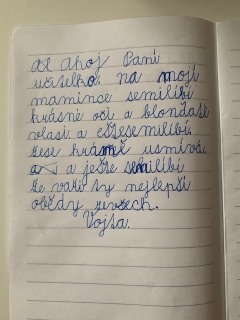 Ahoj Paní
učitelko. na mojí
mamince semilíbí
krásné oči a blonďaté
vlasi a ještesemilíbí.
žese krásně usmívá.
a a ješte semilíbí
že vaří ty nejlepší
obědy zevšech.
Vojta.